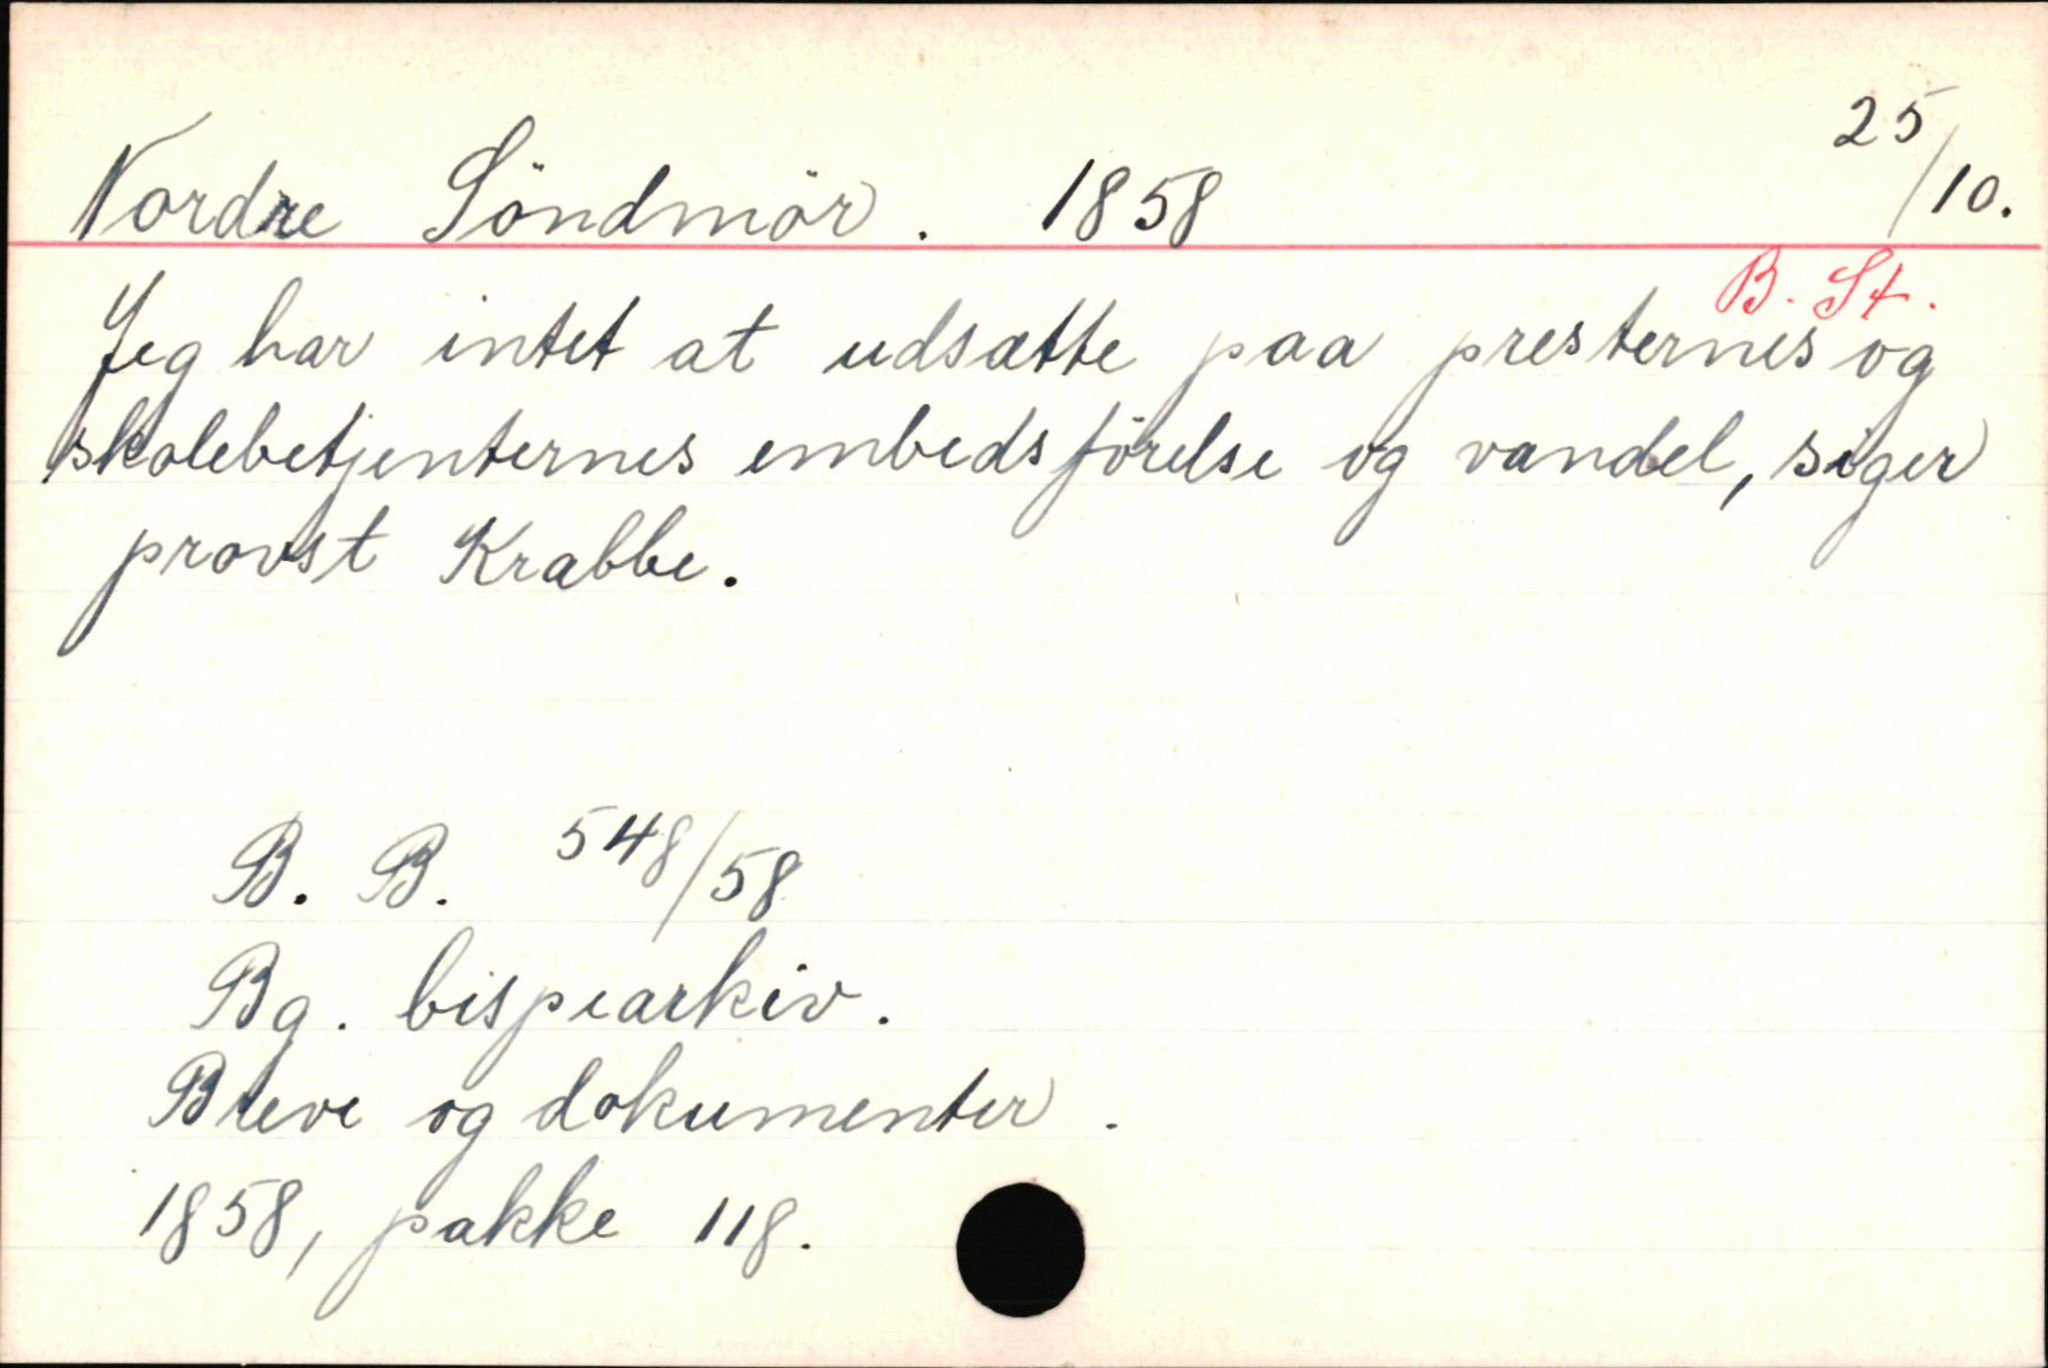 Nordre Söndmör. 1858 25/10.
B. St.
Jeg har intet at udsætte paa presternes og
skolebetjenternes embedsförelse og vandel, siger
provst Krabbe.
B. B. 548/58
Bg. bispearkiv.
Breve og dokumenter.
1858, pakke 118.